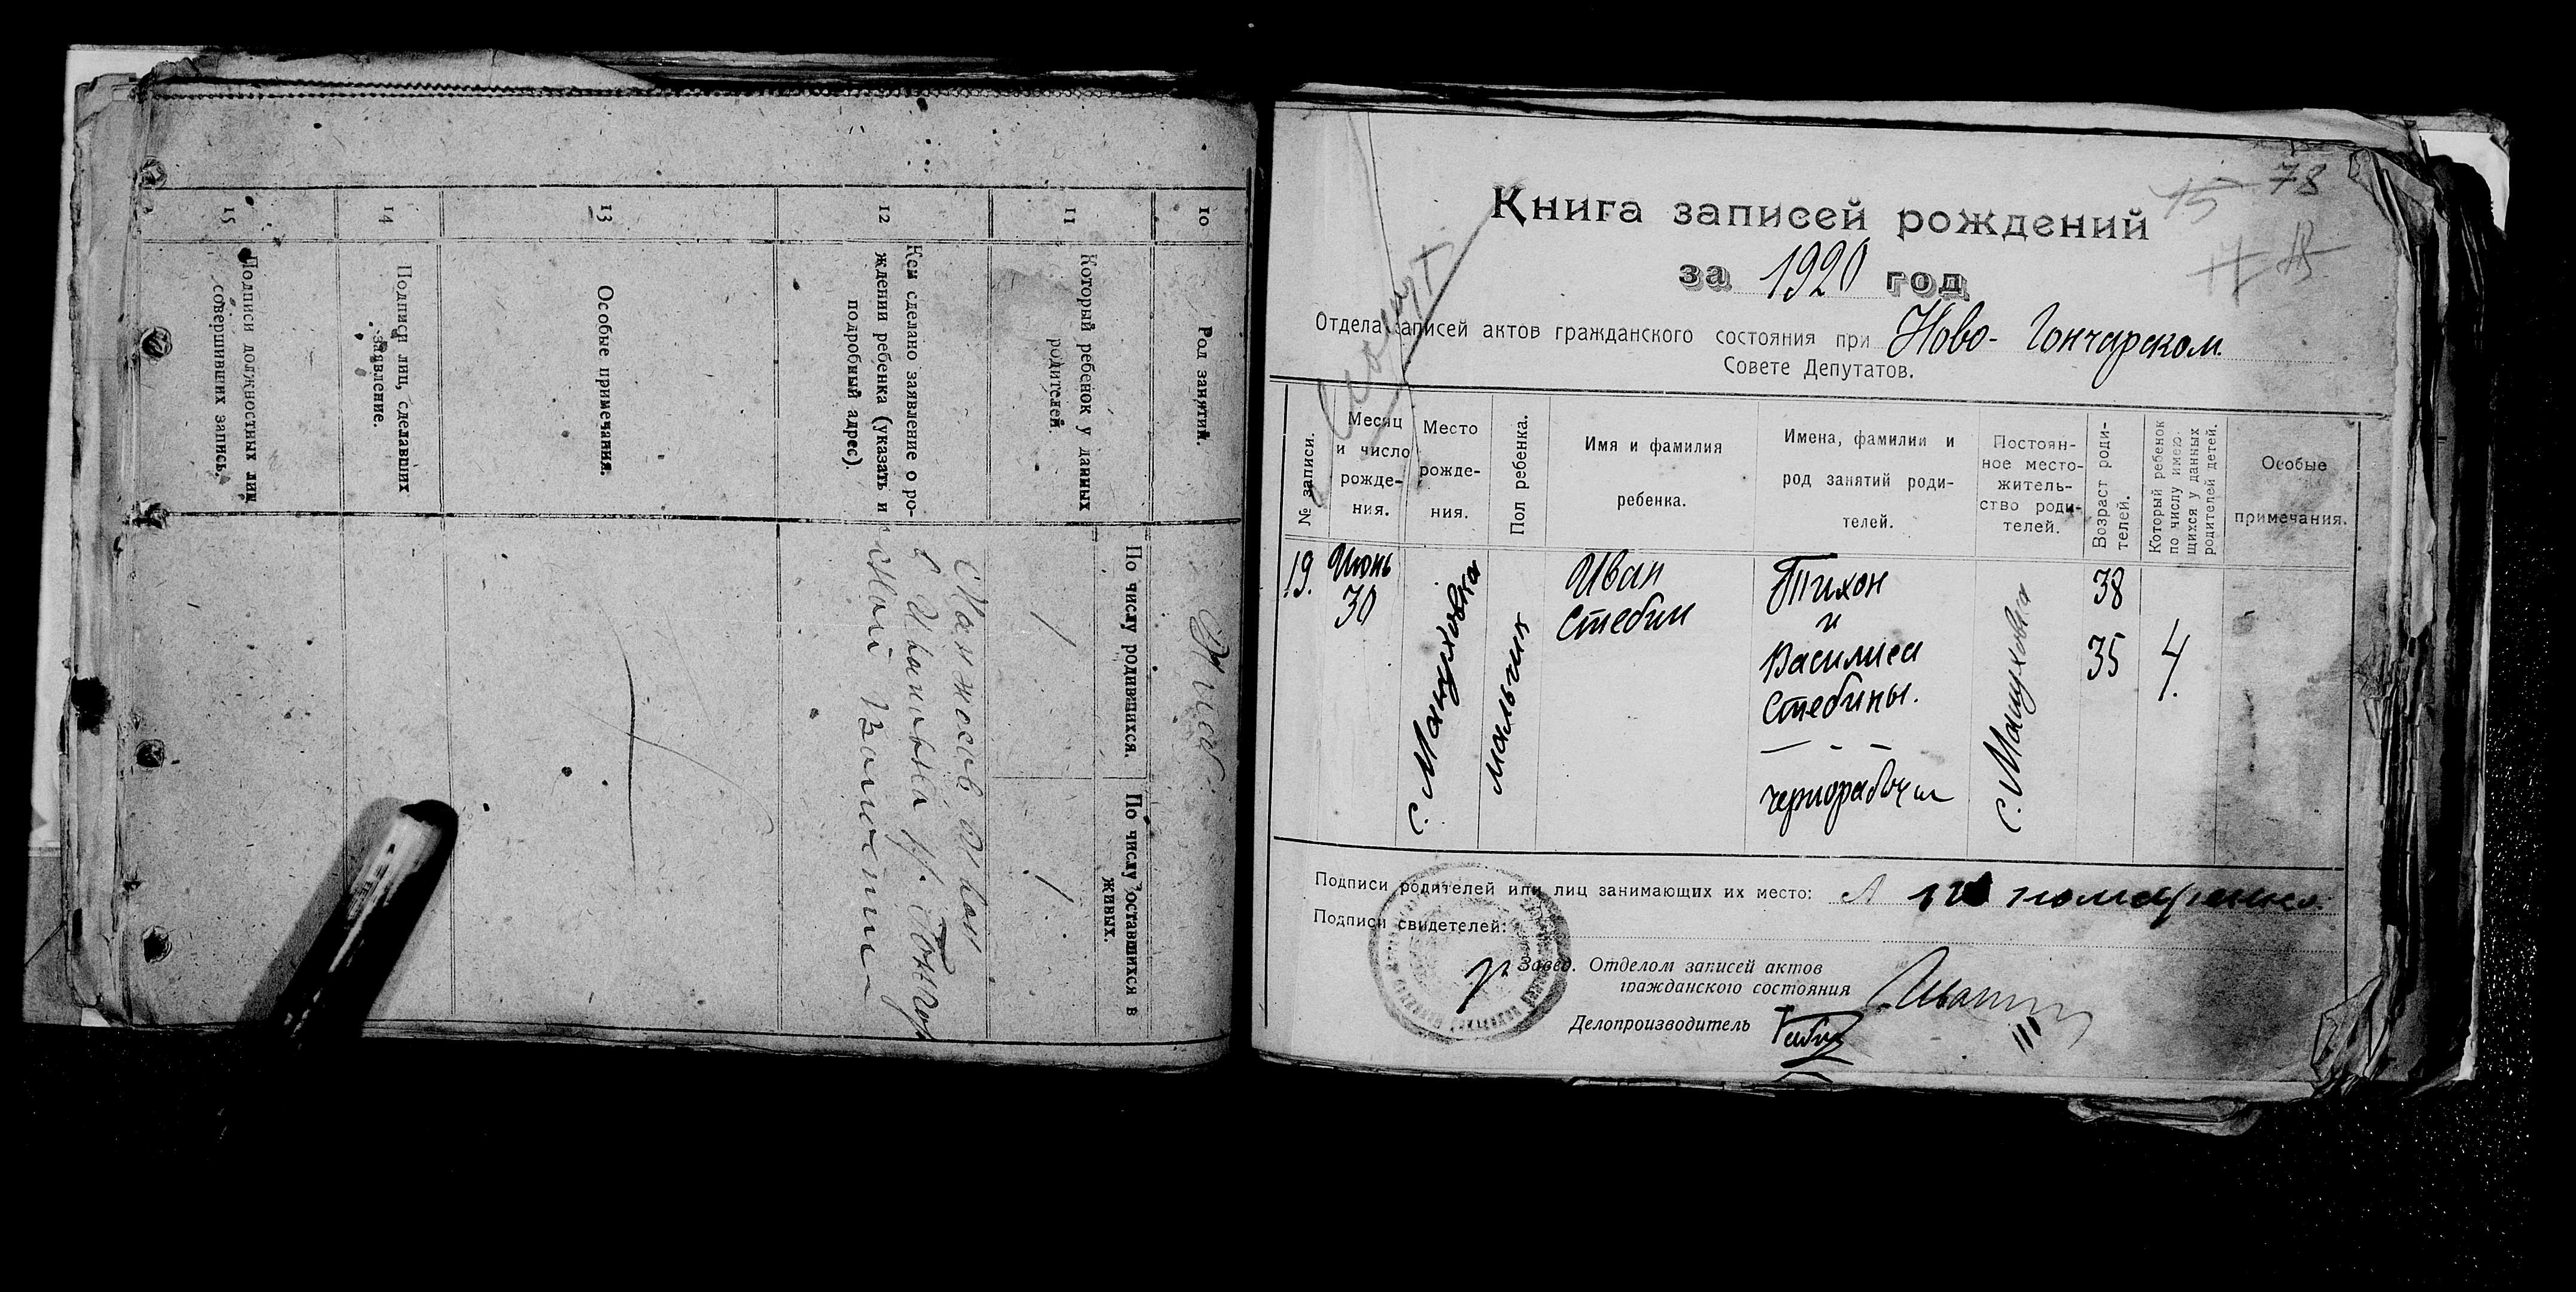 10
Род занятий.
11
Который ребенок у данных
родителей.
По числу родившихся.
По числу оставшихся в
живых.
1
1
12
Кем сделано заявление о ро-
ждении ребенка (указать и
подробный адрес).
13
Особые примечания.
14
Подписи лиц, сделавших
заявление.
15
Подписи должностных лиц
совершивших запись.
78
15
Книга записей рождений
за 1920 год
Отдела записей актов гражданского состояния при Ново-Гончарском
Совете Депутатов.
№ записи.
Месяц
и число
рожде-
ния.
Место
рожде-
ния.
Пол ребенка.
Имя и фамилия
ребенка.
Имена, фамилии и
род занятий роди-
телей.
Постоян-
ное место-
житель-
ство роди-
телей.
Возраст роди-
телей.
Который ребенок
по числу имею-
щихся у данных
родителей детей.
Особые
примечания.
19.
Июнь
30
с. Мануховка
мальчик
Иван
Стебин
Тихон
и
Василиса
Стебины.
чернорабочий
с. Мануховка
38
35
4.
Подписи родителей или лиц занимающих их место:
Подписи свидетелей:
Завед. Отделом записей актов
гражданского состояния
Делопроизводитель